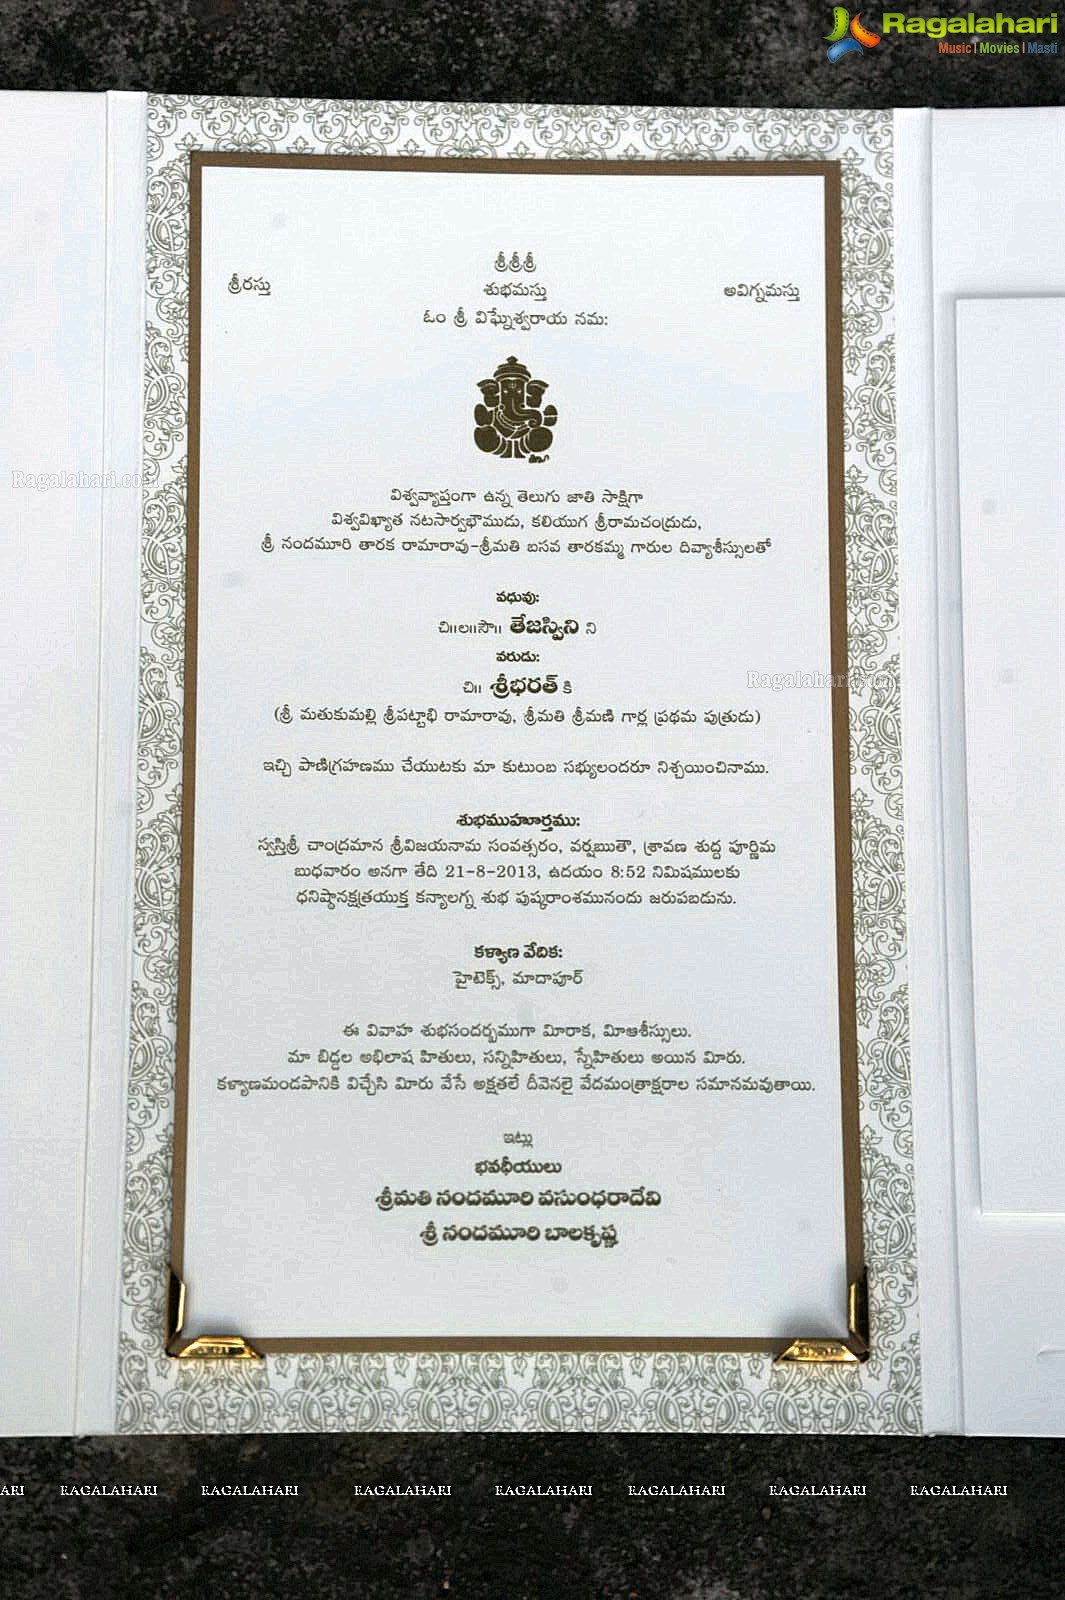 Ragalahari
Music | Movies | Masti
శ్రీశ్రీశ్రీ
శ్రీరస్తు శుభమస్తు అవిగ్నమస్తు
ఓం శ్రీ విఘ్నేశ్వరాయ నమ:
Ragalahari.com
విశ్వవ్యాప్తంగా ఉన్న తెలుగు జాతి సాక్షిగా
విశ్వవిఖ్యాత నటసార్వభౌముడు, కలియుగ శ్రీరామచంద్రుడు,
శ్రీ నందమూరి తారక రామారావు-శ్రీమతి బసవ తారకమ్మ గారుల దివ్యాశీస్సులతో
వధువు:
చి॥ల॥సౌ॥ తేజస్విని ని
వరుడు:
చి॥ శ్రీభరత్ కి
Ragalahari.com
(శ్రీ మతుకుమల్లి శ్రీపట్టాభి రామారావు, శ్రీమతి శ్రీమణి గార్ల ప్రథమ పుత్రుడు)
ఇచ్చి పాణిగ్రహణము చేయుటకు మా కుటుంబ సభ్యులందరూ నిశ్చయించినాము.
శుభముహూర్తము:
స్వస్తిశ్రీ చాంద్రమాన శ్రీవిజయనామ సంవత్సరం, వర్షఋతౌ, శ్రావణ శుద్ద పూర్ణిమ
బుధవారం అనగా తేది 21-8-2013, ఉదయం 8:52 నిమిషములకు
ధనిష్ఠానక్షత్రయుక్త కన్యాలగ్న శుభ పుష్కరాంశమునందు జరుపబడును.
కళ్యాణ వేదిక:
హైటెక్స్, మాదాపూర్
ఈ వివాహ శుభసందర్భముగా మీరాక, మీఆశీస్సులు.
మా బిడ్డల అభిలాష హితులు, సన్నిహితులు, స్నేహితులు అయిన మీరు.
కళ్యాణమండపానికి విచ్చేసి మీరు వేసే అక్షతలే దీవెనలై వేదమంత్రాక్షరాల సమానమవుతాయి.
ఇట్లు
భవధీయులు
శ్రీమతి నందమూరి వసుంధరాదేవి
శ్రీ నందమూరి బాలకృష్ణ
ARI RAGALAHARI RAGALAHARI RAGALAHARI RAGALAHARI RAGALAHARI RAGALAHARI RAGALAHARI